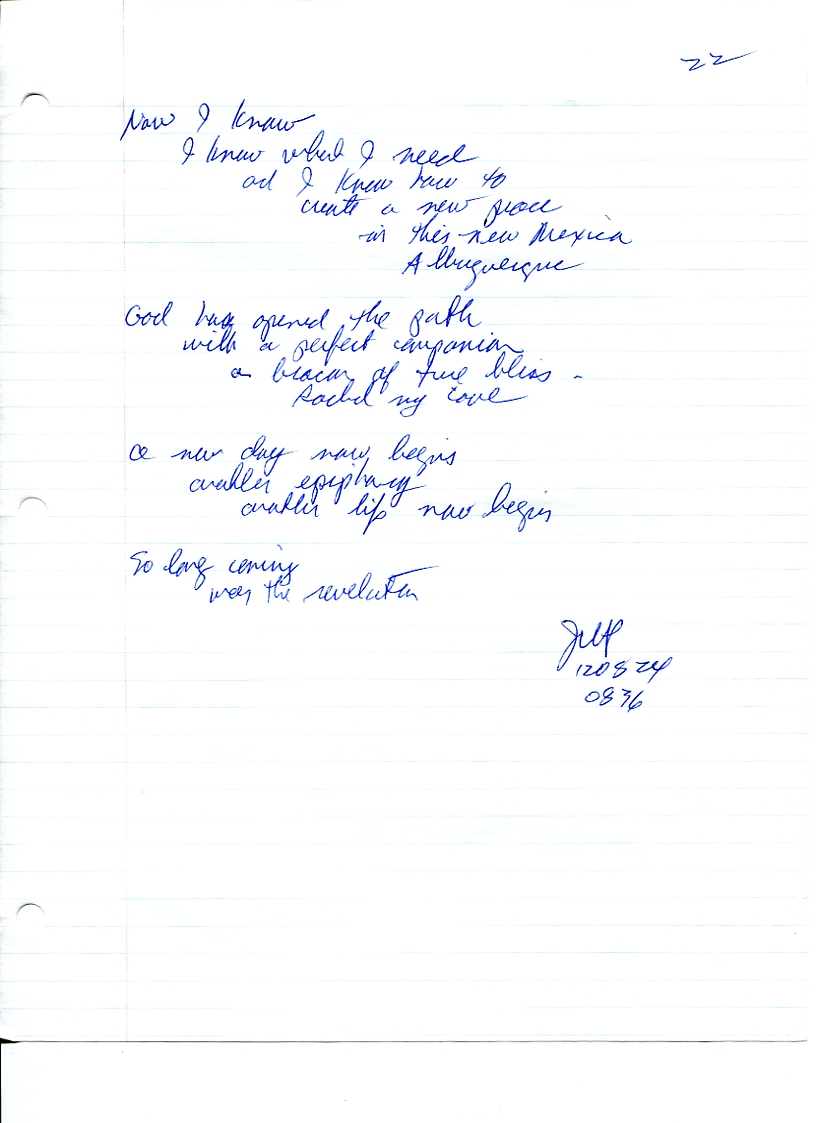 22
Now I know
I know what I need
ad I know how to
create a new peace
in this new Mexico
Albuquerque
God has opened the path
with a perfect companion
a beacon of true bliss -
Rachel my love
a new day now begins
another epiphany
another life now begins
So long coming
was the revelation
120824
0836